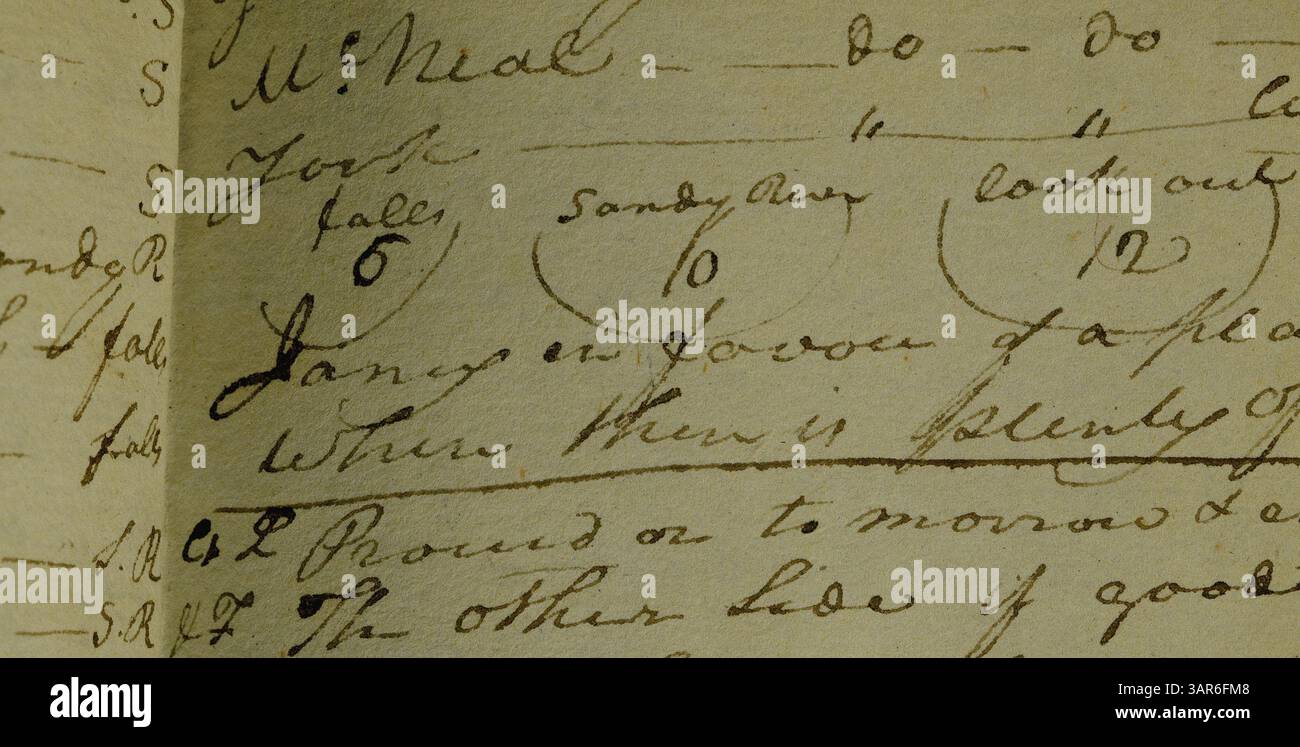 S
S
S
ndy R
falls
falls
S. R
S. R
McNeal — — do — do —
York — " — "
falls Sandy River look out
6 10 12
Janey in favour of a pla
where there is plenty of
Proceed on to morrow & e
The other Side if good
a alamy stock photo
alamy
Image ID: 3AR6FM8
www.alamy.com